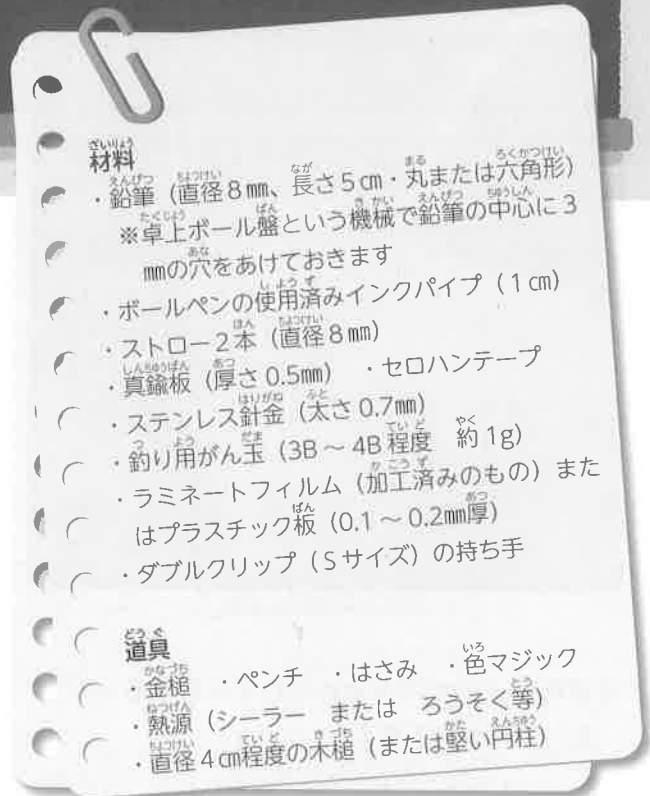 材料
・鉛筆（直径8㎜、長さ5㎝・丸または六角形）
※卓上ボール盤という機械で鉛筆の中心に3
㎜の穴をあけておきます
・ボールペンの使用済みインクパイプ（1㎝）
・ストロー2本（直径8㎜）
・真鍮板（厚さ0.5㎜）　・セロハンテープ
・ステンレス針金（太さ0.7㎜）
・釣り用がん玉（3B～4B程度　約1g）
・ラミネートフィルム（加工済みのもの）また
はプラスチック板（0.1～0.2㎜厚）
・ダブルクリップ（Sサイズ）の持ち手
道具
・金槌　・ペンチ　・はさみ　・色マジック
・熱源（シーラー　または　ろうそく等）
・直径4㎝程度の木槌（または堅い円柱）